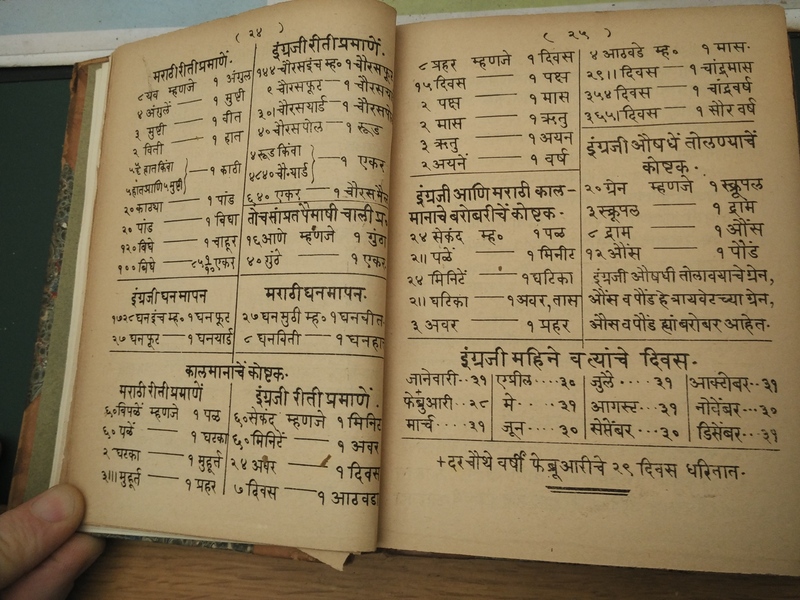 ( २४ )
मराठी रीतीप्रमाणें.
८ यव म्हणजे १ अंगुल
४ अंगुलें —— १ मुष्टी
३ मुष्टी —— १ वीत
२ विती —— १ हात
५ हात आणि ५ मुष्टी } —— १ काठी
२० काठ्या —— १ पांड
२० पांड —— १ बिघा
१२० बिघे —— १ चाहूर
१०० बिघे —— एकर
इंग्रजी रीतीप्रमाणें.
१४४ चौरस इंच म्ह० १ चौरस फूट
९ चौरस फूट —— १ चौरस
३०। चौरस यार्ड —— १ चौरस
४० चौरस पोल —— १ रूड
४ रूड किंवा
४८४० चौ. यार्ड } —— १ एकर
६४० एकर —— १ चौरस मैल
तोच सांप्रत पैमाषी चाली प्र.
१६ आणे म्हणजे १ गुंठा
४० गुंठे —— १ एकर
इंग्रजी घनमापन
१७२८ घन इंच म्ह० १ घन फूट
२७ घन फूट —— १ घनयार्ड
मराठी घनमापन.
२७ घन मुठी म्ह० १ घनवीत
८ घनविती —— १ घनहात
कालमानाचें कोष्टक.
मराठी रीतीप्रमाणें
६० विपळें म्हणजे १ पळ
६० पळें —— १ घटका
२ घटका —— १ मुहूर्त
३॥। मुहूर्त —— १ प्रहर
इंग्रजी रीती प्रमाणें.
६० सेकंद म्हणजे १ मिनिट
६० मिनिटें —— १ अवर
२४ अवर —— १ दिवस
७ दिवस —— १ आठवडा
( २५ )
८ प्रहर म्हणजे १ दिवस
१५ दिवस —— १ पक्ष
२ पक्ष —— १ मास
२ मास —— १ ऋतु
३ ऋतु —— १ अयन
२ अयनें —— १ वर्ष
इंग्रजी आणि मराठी काल-
मानाचे बरोबरीचें कोष्टक.
२४ सेकंद म्ह० १ पळ
२॥ पळें —— १ मिनीट
२४ मिनिटें —— १ घटिका
२॥ घटिका —— १ अवर, तास
३ अवर —— १ प्रहर
४ आठवडे म्ह० १ मास.
२९॥ दिवस —— १ चांद्रमास
३५४ दिवस —— १ चांद्रवर्ष
३६५। दिवस —— १ सौर वर्ष
इंग्रजी औषधें तोलण्याचें
कोष्टक.
२० ग्रेन म्हणजे १ स्क्रूपल
३ स्क्रूपल —— १ द्राम
८ द्राम —— १ औंस
१२ औंस —— १ पौंड
इंग्रजी औषधी तोलावयाचे ग्रेन,
औंस व पौंड हे त्रायवेटच्या ग्रेन,
औंस व पौंड ह्यांबरोबर आहेत.
इंग्रजी महिने व त्यांचे दिवस.
जानेवारी.. ३१ एप्रील .... ३० जुलै .... ३१ आक्टोबर.. ३१
फेब्रुआरी.. २८ मे .... ३१ आगस्ट ... ३१ नोवेंबर .. ३०
मार्च .... ३१ जून .... ३० सेप्टेंबर .. ३० डिसेंबर.. ३१
+ दर चौथे वर्षी फेब्रूआरीचे २९ दिवस धरितात.